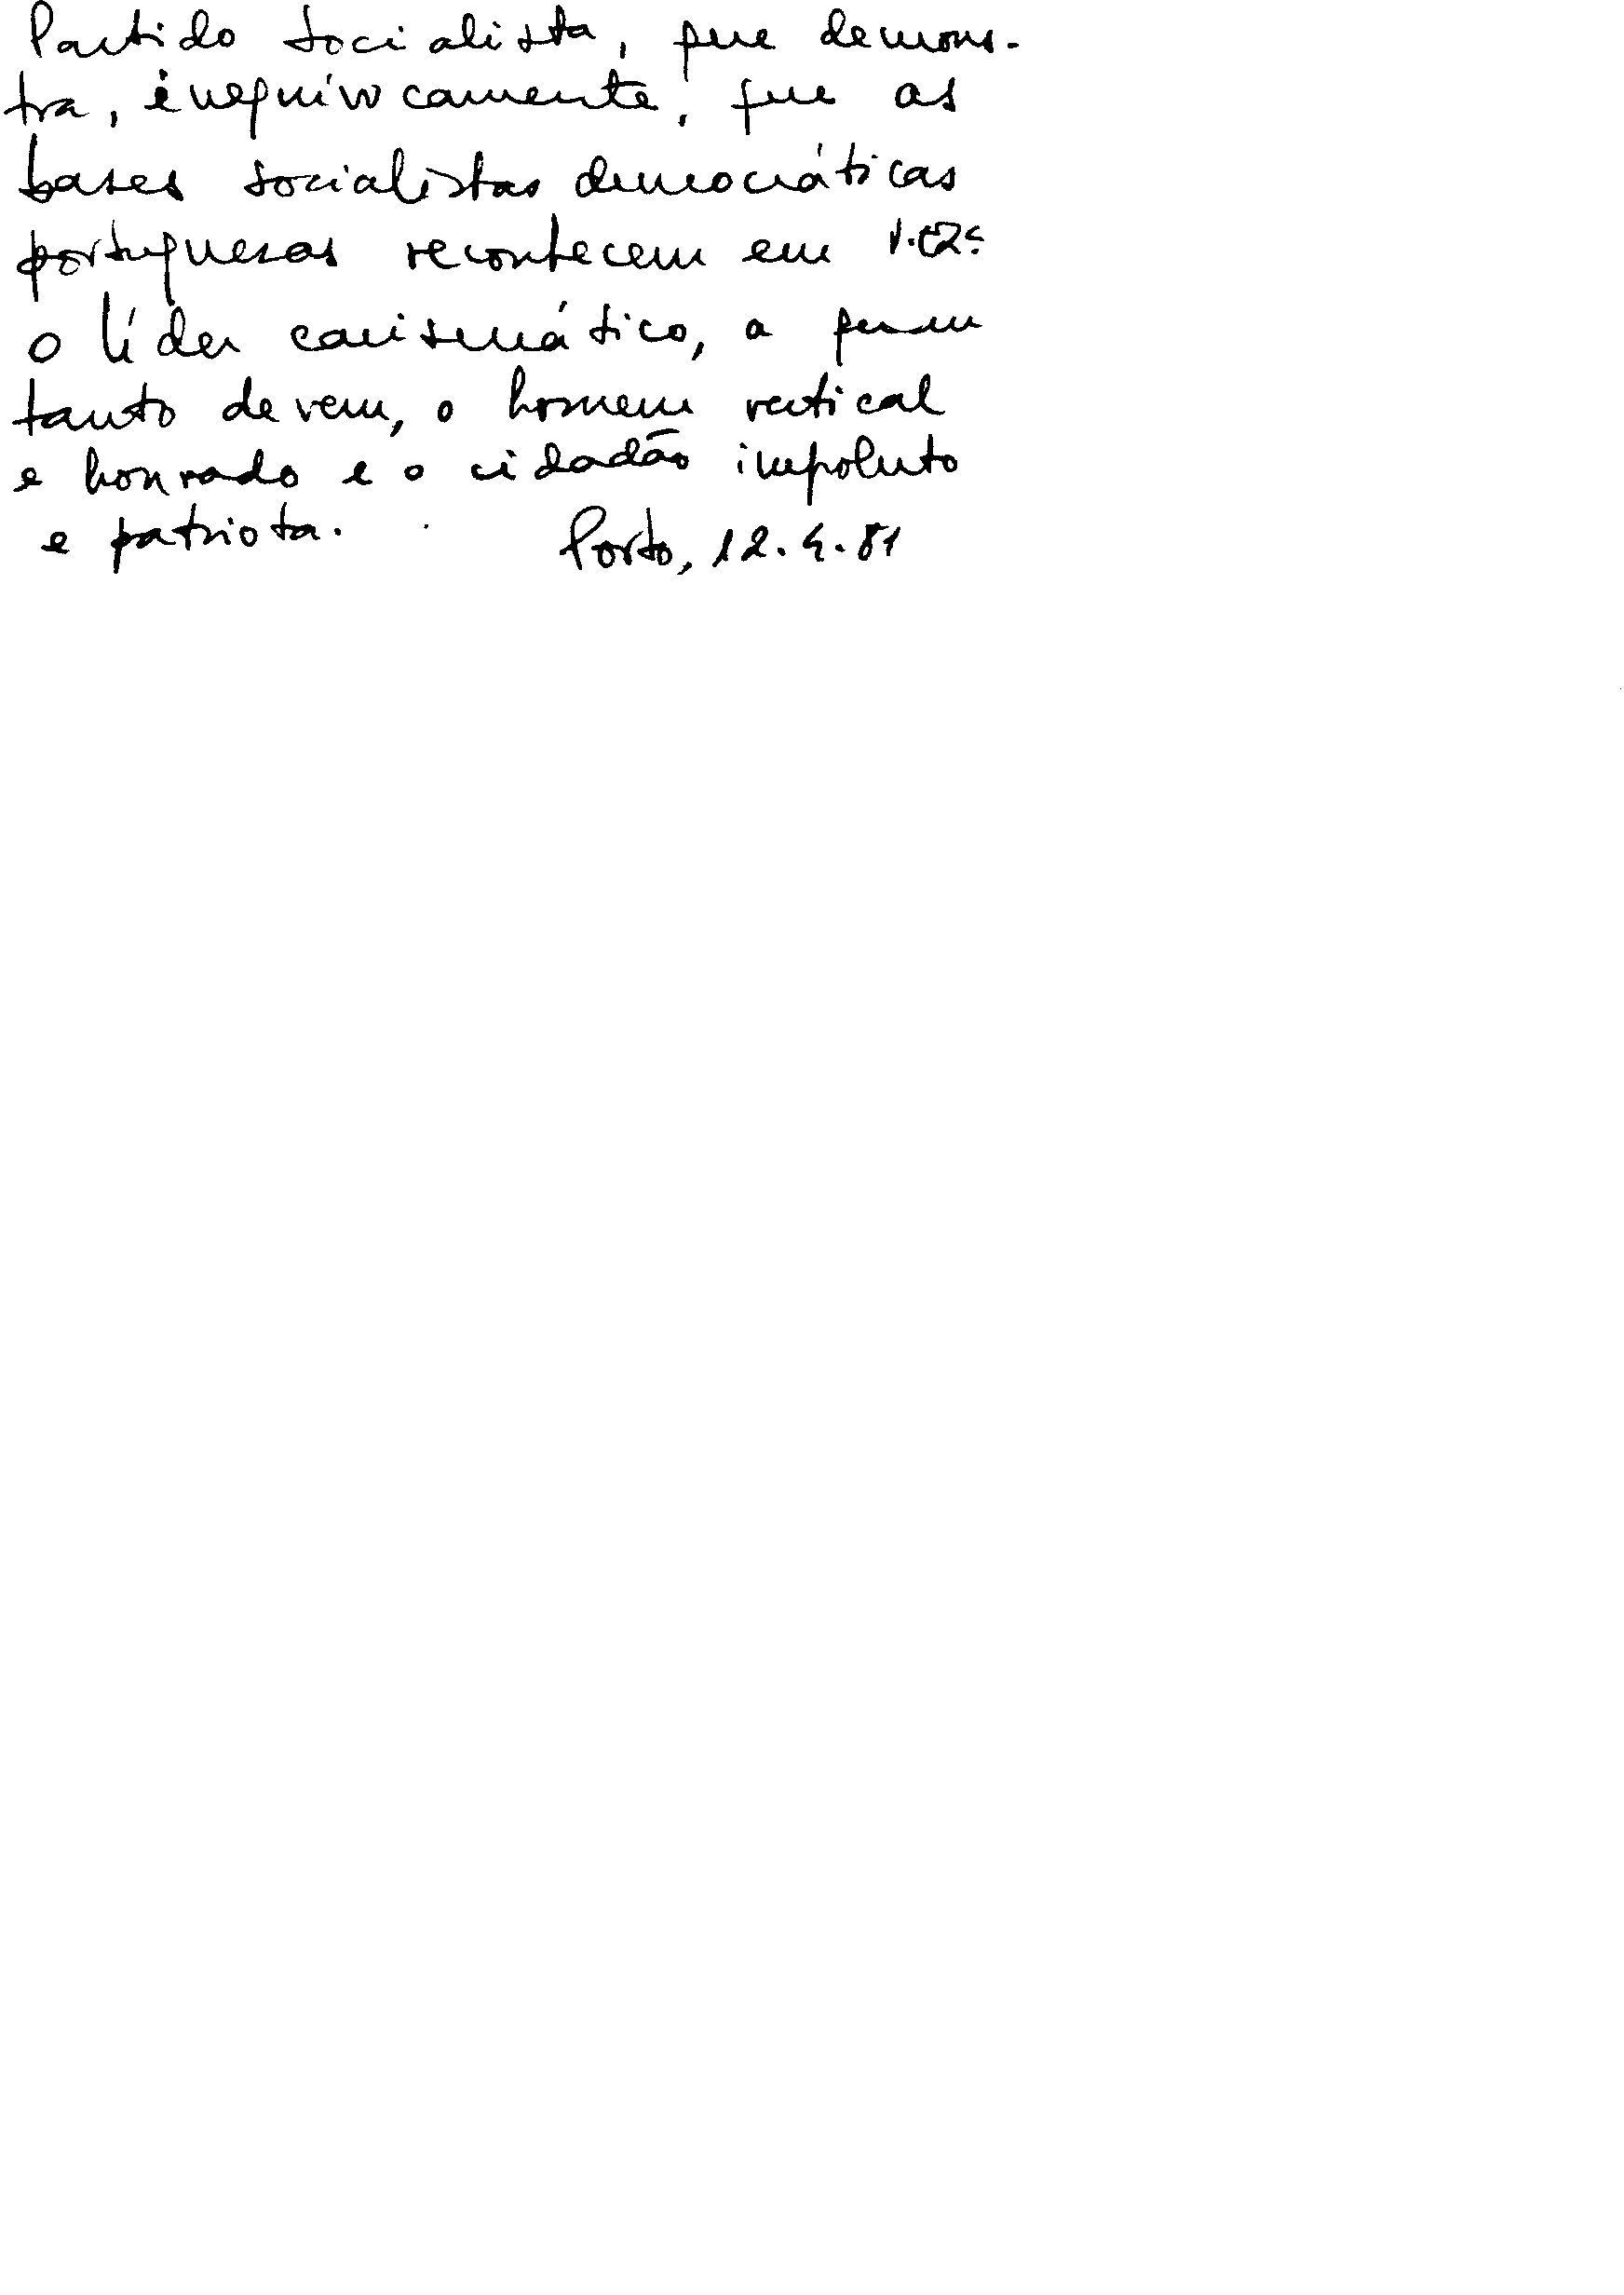 Partido Socialista, que demons-
tra, inequivocamente, que as
bases socialistas democráticas
portuguesas reconhecem em V. Exª.
o líder carismático, a quem
tanto devem, o homem vertical
e honrado e o cidadão impoluto
e patriota. Porto, 12.4.81